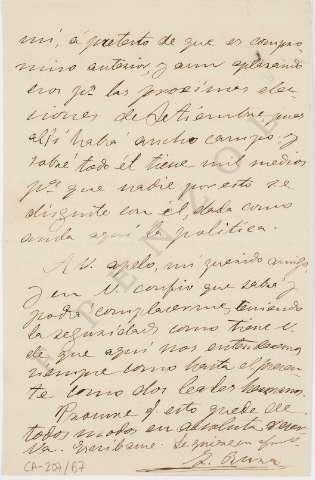 mí, á pretesto de que es compro
miso anterior, y aun aplazando
esos pª las próximas elec-
ciones de Setiembre, pues
allí habrá ancho campo, y
sobre todo él tiene mil medios
pª que nadie por esto se
disguste con él, dada como
anda aquí la política.
A V. apelo, mi querido amigo,
y en V. confío que sabrá y
podrá complacerme, teniendo
la seguridad, como tiene V.
de que aquí nos entendemos
siempre como hasta el presen-
te como dos leales hermanos.
que esto quede de
todos modos en absoluta reser
va. Escríbame. Se
CA-207/67